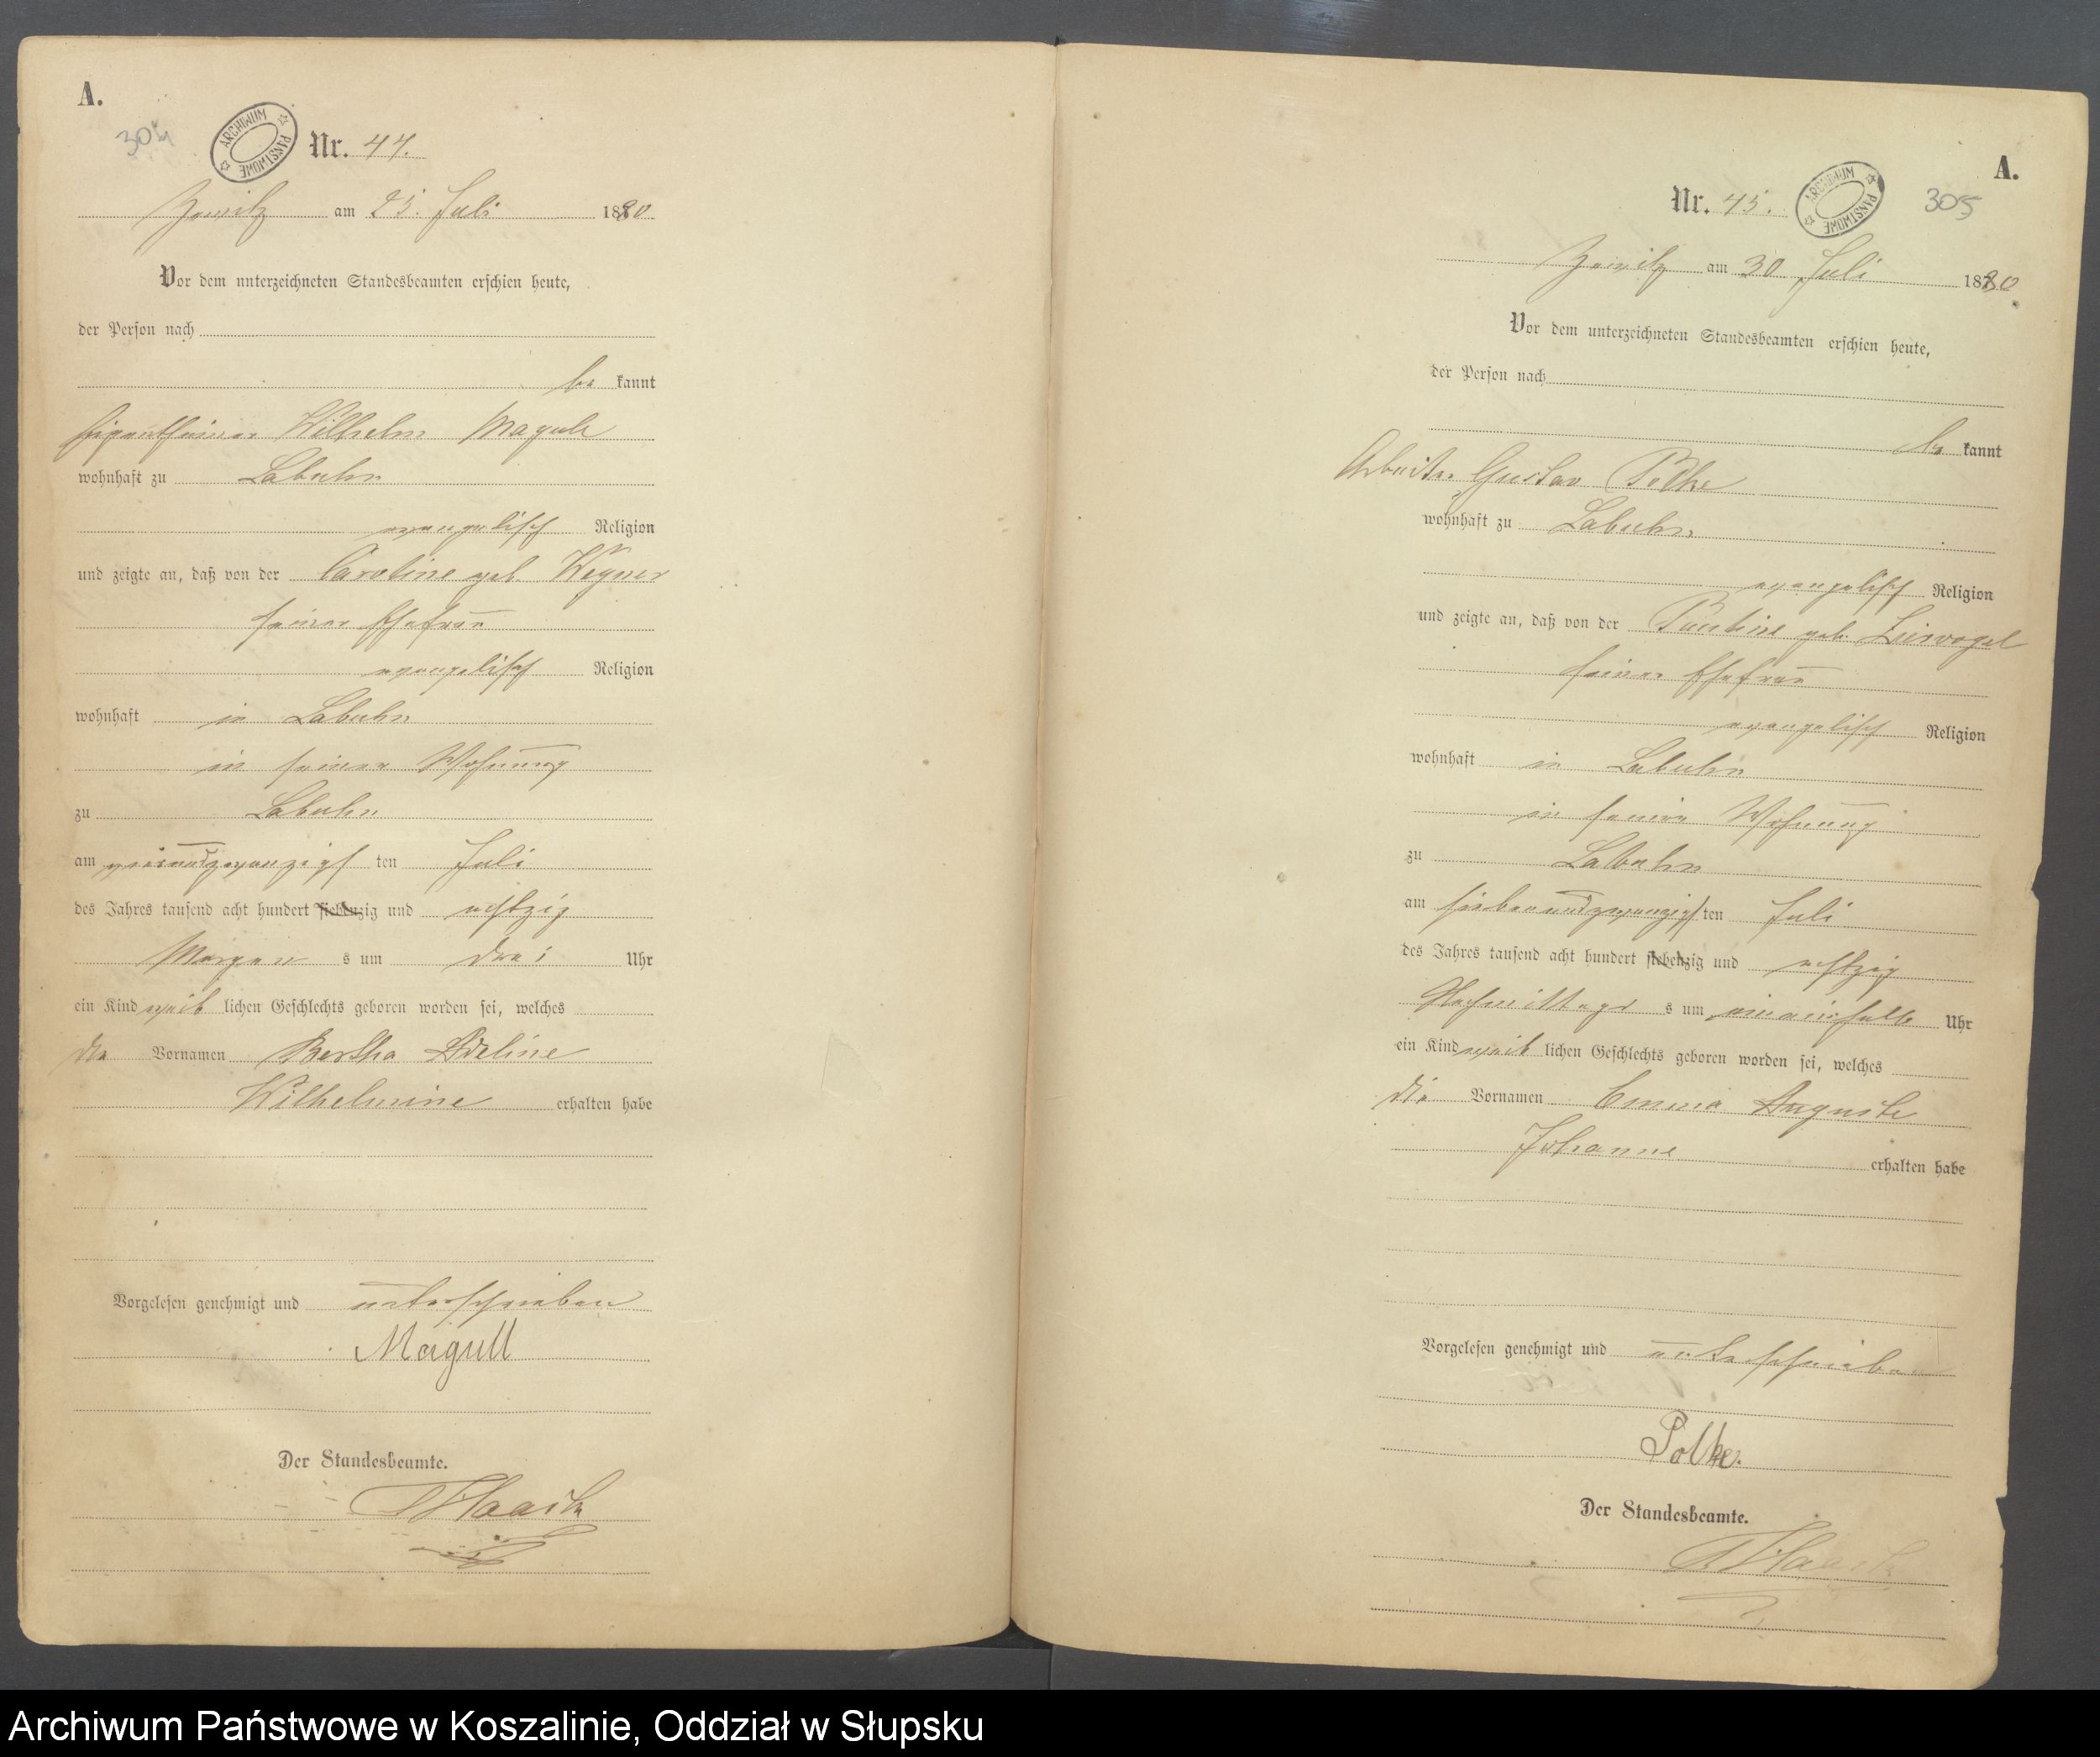 A.
304
ARCHIWUM PAŃSTWOWE
Nr. 44.
Zewitz am 25. Juli 1880
Vor dem unterzeichneten Standesbeamten erschien heute,
der Person nach
be kannt
Eigenthümer Wilhelm Magull
wohnhaft zu Labuhn
evangelisch Religion
und zeigte an, daß von der Caroline geb. Wegner
seiner Ehefrau
evangelisch Religion
wohnhaft in Labuhn
in seiner Wohnung
zu Labuhn
am vierundzwanzigsten Juli
des Jahres tausend acht hundert siebenzig und achtzig
Morgens um drei Uhr
ein Kind weiblichen Geschlechts geboren worden sei, welches
die Vornamen Bertha Adeline
Wilhelmine erhalten habe
Vorgelesen genehmigt und unterschrieben
Magull
Der Standesbeamte.
A.
Nr. 45.
ARCHIWUM PAŃSTWOWE
305
Zewitz am 30 Juli 1880
Vor dem unterzeichneten Standesbeamten erschien heute,
der Person nach
be kannt
Arbeiter Gustav Polke
wohnhaft zu Labuhn
evangelisch Religion
und zeigte an, daß von der Pauline geb. Liervogel
seiner Ehefrau
evangelisch Religion
wohnhaft in Labuhn
in seiner Wohnung
zu Labuhn
am siebenundzwanzigsten Juli
des Jahres tausend acht hundert siebenzig und achtzig
Nachmittags um Uhr
ein Kind weiblichen Geschlechts geboren worden sei, welches
die Vornamen Emma Auguste
Johanne erhalten habe
Vorgelesen genehmigt und unterschrieben
Polke.
Der Standesbeamte.
Archiwum Państwowe w Koszalinie, Oddział w Słupsku